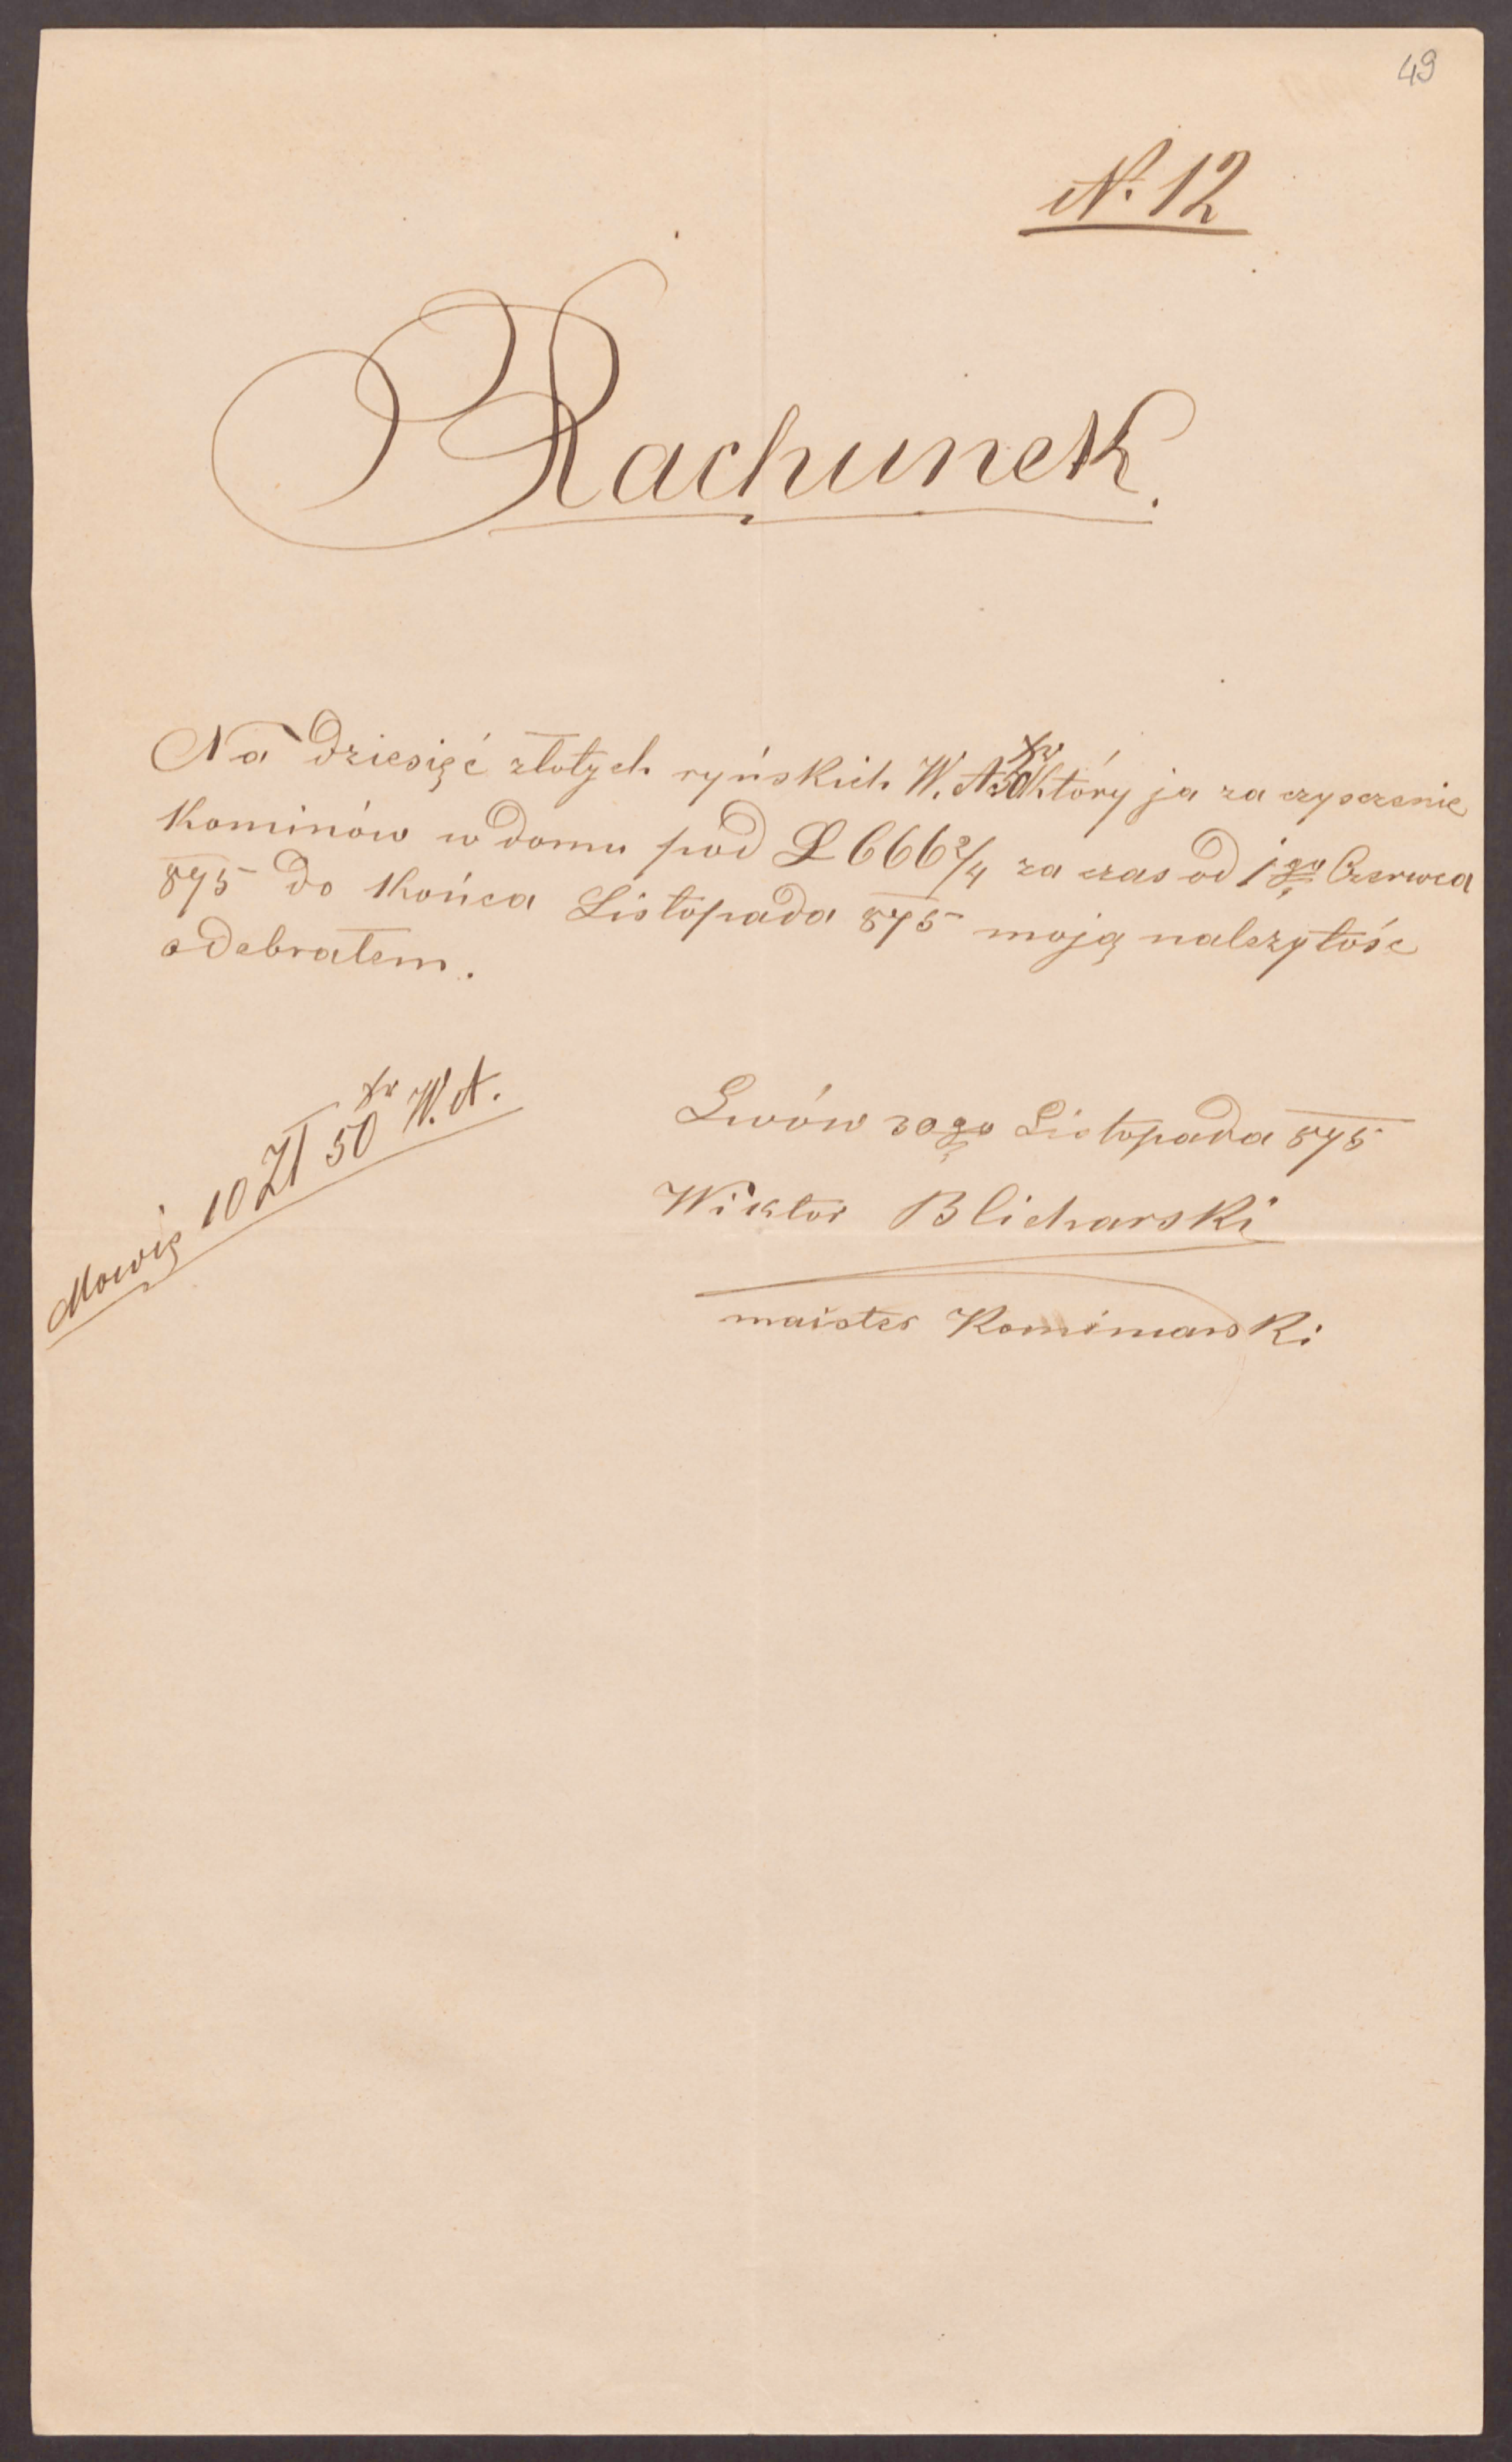 49
N. 12
Rachunek.
Na dziesięć złotych ryńskich W. A 50 xr który ja za czysczenie
Kominów w domu pod L 666 2/4 za czas od 1go Czerwca
875 do Końca Listopada 875 moją należytośc
odebrałem.
Mowię 10 Zł 50 xr W. A.
Lwów 30go Listopada 875
Wiktor Blicharski
maister Kominiarski